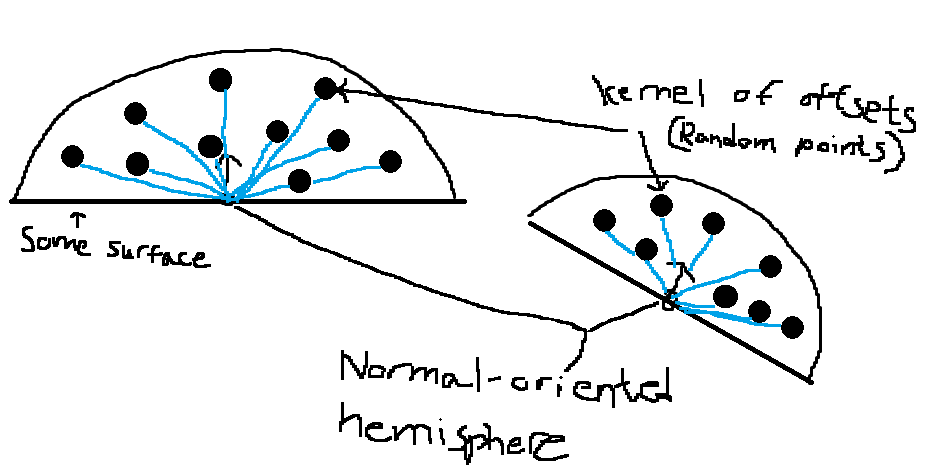 kernel of offsets
(Random points)
Some surface
Normal-oriented
hemisphere